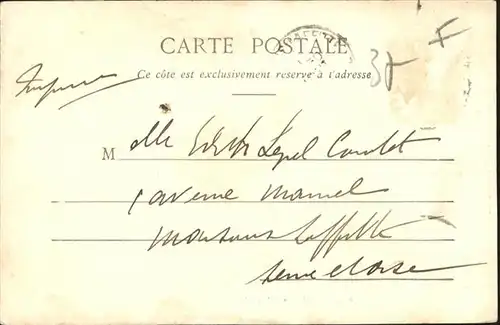 CARTE POSTALE
Ce côté est exclusivement réservé à l'adresse
Imprimé
M elle Lepel Cointet
avenue
Maisons Laffitte
Seine et Oise